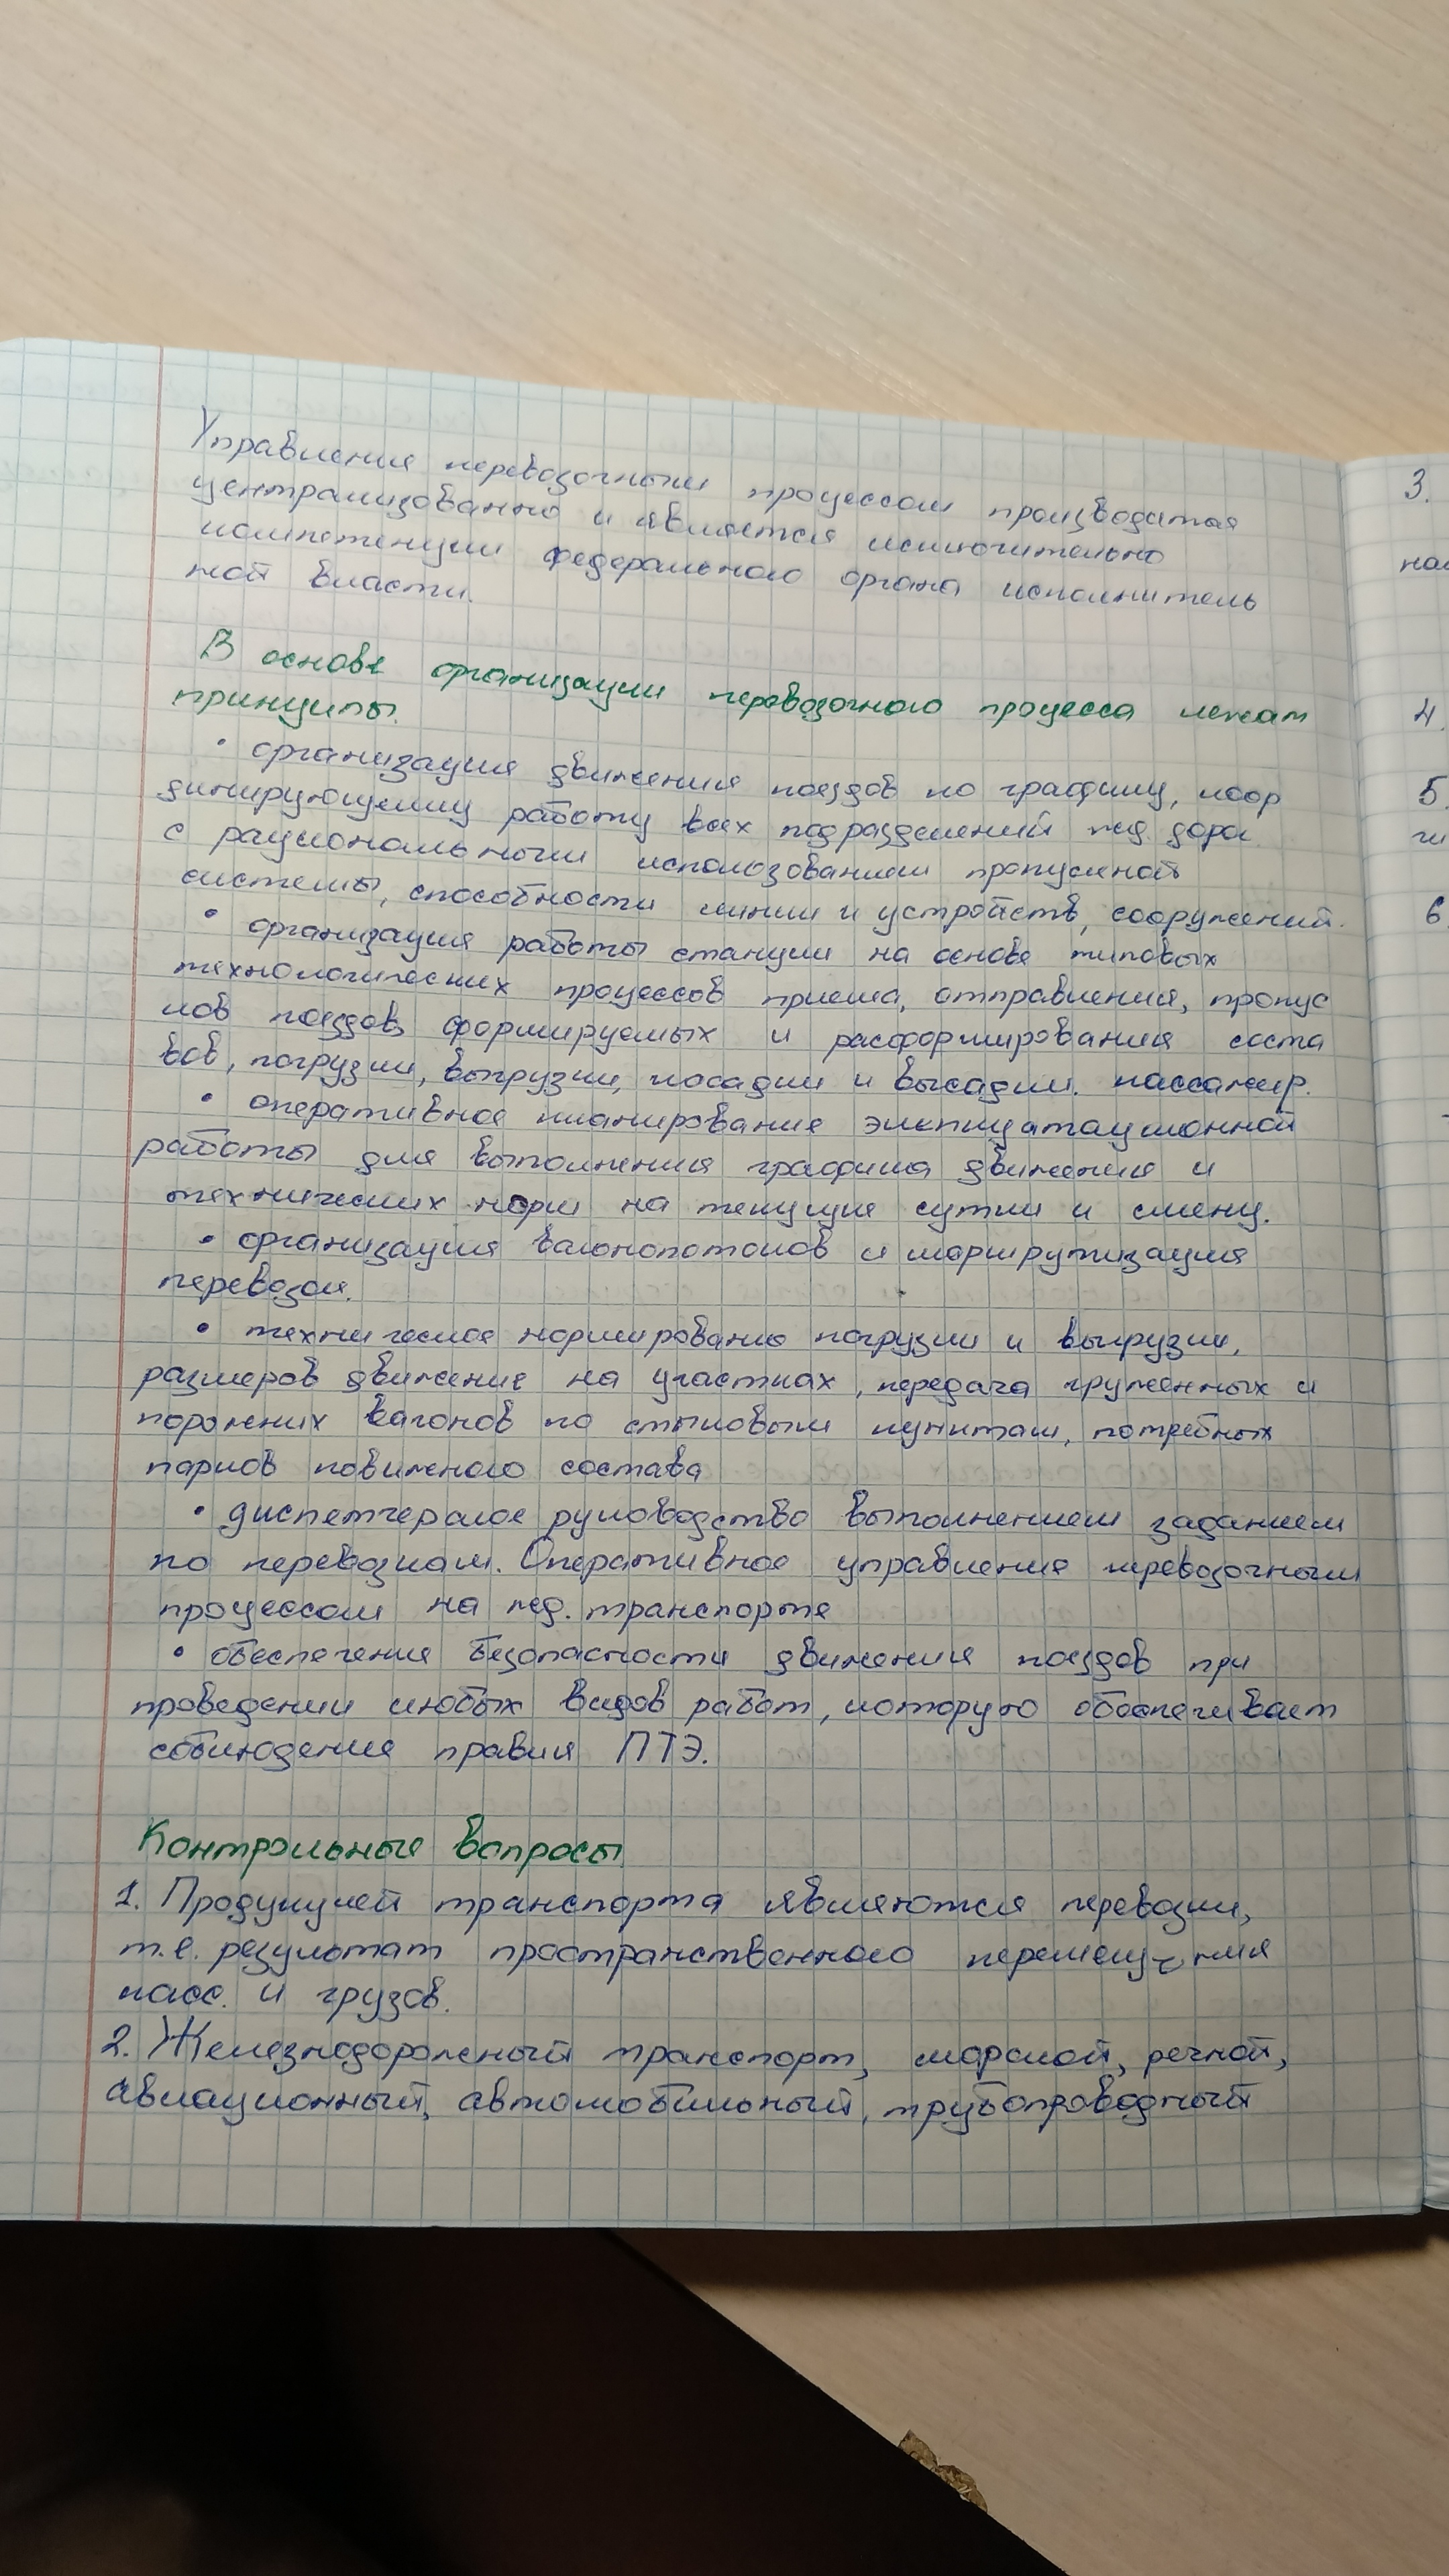 Управления перевозочным процессом производится
централизованно и является исключительно
компетенции федерального органа исполнитель
ной власти.
В основе организации перевозочного процесса лежат
принципы.
• организация движения поездов по графику, коор
динирующему работу всех подразделений жд. доро
с рациональным использованием пропускной
системы, способности линии и устройств, сооружений.
• организация работы станции на основе типовых
технологических процессов приема, отправления, пропус
ков поездов, формируемых и расформирования соста
вов, погрузки, выгрузки, посадки и высадки. пассажир.
• оперативное планирование эксплуатационной
работы для выполнения графика движения и
технических норм на текущие сутки и смену.
• организация вагонопотоков и маршрутизация
перевозок.
• техническое нормирование погрузки и выгрузки,
размеров движение на участках, передача груженных и
порожних вагонов по стыковым пунктам, потребных
парков повижного состава
• диспетчерское руководство выполнением заданием
по перевозкам. Оперативное управления перевозочным
процессом на жд. транспорте
• обеспечения безопасности движения поездов при
проведении любых видов работ, которую обеспечивает
соблюдение правил ПТЭ.
Контрольные вопросы
1. Продукцией транспорта являются перевозки,
т.е. результат пространственного перемещения
пасс. и грузов.
2. Железнодорожный транспорт, морской, речной,
авиационный, автомобильный, трубопроводный
3.
4.
5.
6